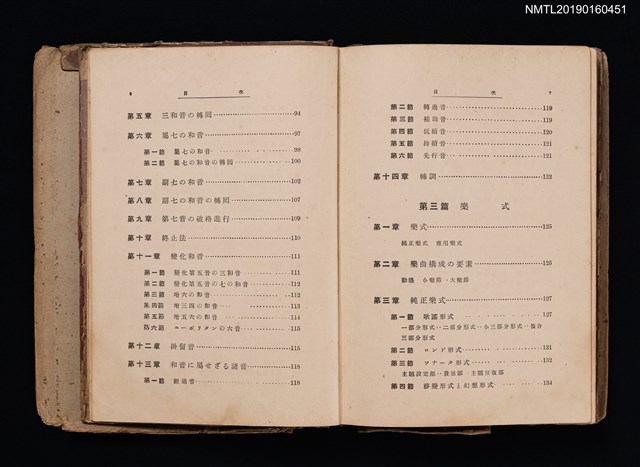 NMTL20190160451
6 目次
第五章 三和音の轉囘 94
第六章 屬七の和音 97
第一節 屬七の和音 98
第二節 屬七の和音の轉囘 100
第七章 副七の和音 102
第八章 副七の和音の轉囘 107
第九章 第七音の破格進行 109
第十章 終止法 110
第十一章 變化和音 111
第一節 變化第五音の三和音 111
第二節 變化第五音の七の和音 112
第三節 增六の和音 112
第四節 增三四の和音 113
第五節 增五六の和音 114
第六節 ニーポリタンの六音 115
第十二章 掛留音 115
第十三章 和音に屬せざる諸音 118
第一節 經過音 118
目次 7
第二節 轉過音 119
第三節 補助音 119
第四節 低續音 120
第五節 持續音 121
第六節 先行音 121
第十四章 轉調 122
第三篇 樂式
第一章 樂式 125
純正樂式 應用樂式
第二章 樂曲構成の要素 125
動機 小樂節 大樂節
第三章 純正樂式 127
第一節 歌謠形式 127
一部分形式 二部分形式 小三部分形式 複合
三部分形式
第二節 ロンド形式 131
第三節 ソナータ形式 132
主題設定部 發展部 主題反復部
第四節 變形式と幻想形式 134